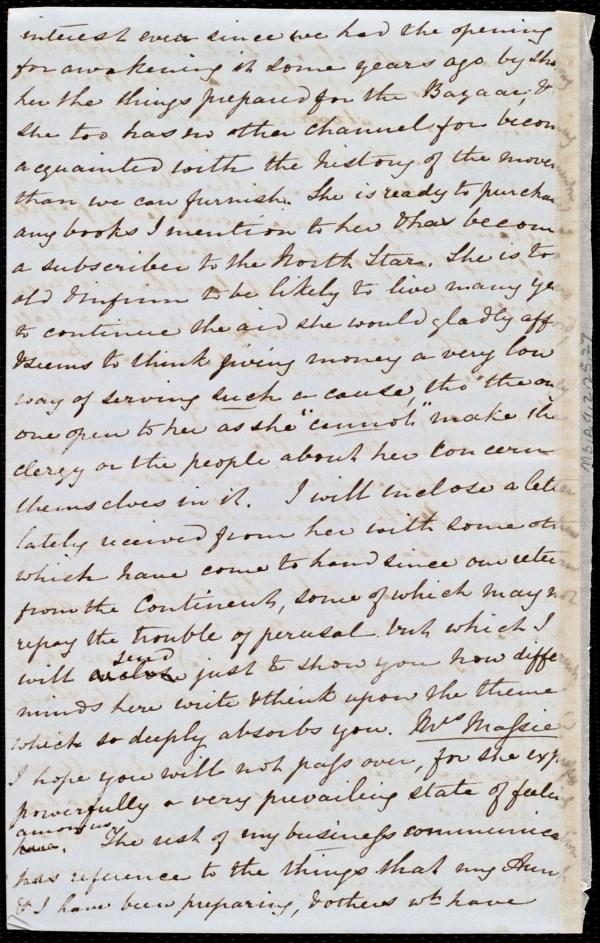 interest ever since we had the opening
for awakening it some years ago by sho
her the things prepared for the Bazaar; &
she too has no other channel for becom
acquainted with the history of the movem
than we can furnish. She is ready to purchas
any books I mention to her & has becom
a subscriber to the North Star. She is too
old & infirm to be likely to live many ye
to continue the aid she would gladly aff
& seems to think giving money a very low
way of serving such a cause, tho' the on
one open to her as she "cannot" make the
clergy or the people about her concern
themselves in it. I will inclose a letter
lately received from her with some oth
which have come to hand since our return
from the Continent, some of which may not
repay the trouble of perusal but which I
will send just to show you how differ
minds here write & think upon the theme
which so deeply absorbs you. Mrs Massie
I hope you will not pass over, for she exp
powerfully a very prevailing state of feelin
among us. The rest of my business communica
has reference to the things that my Aunt
& I have been preparing, & others wh have
MS.A.9.2.25.27